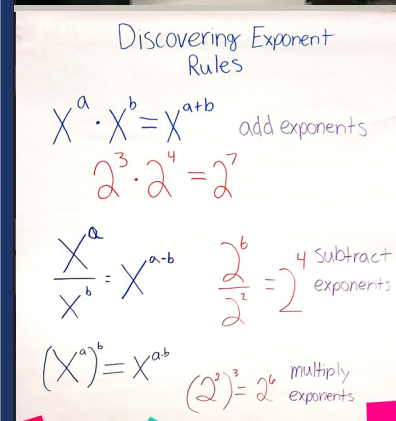 Discovering Exponent
Rules
xᵃ · xᵇ = xᵃ⁺ᵇ add exponents
2³ · 2⁴ = 2⁷
xᵃ/xᵇ = xᵃ⁻ᵇ 2⁶/2² = 2⁴ subtract
exponents
(xᵃ)ᵇ = xᵃ·ᵇ (2²)³ = 2⁶ multiply
exponents